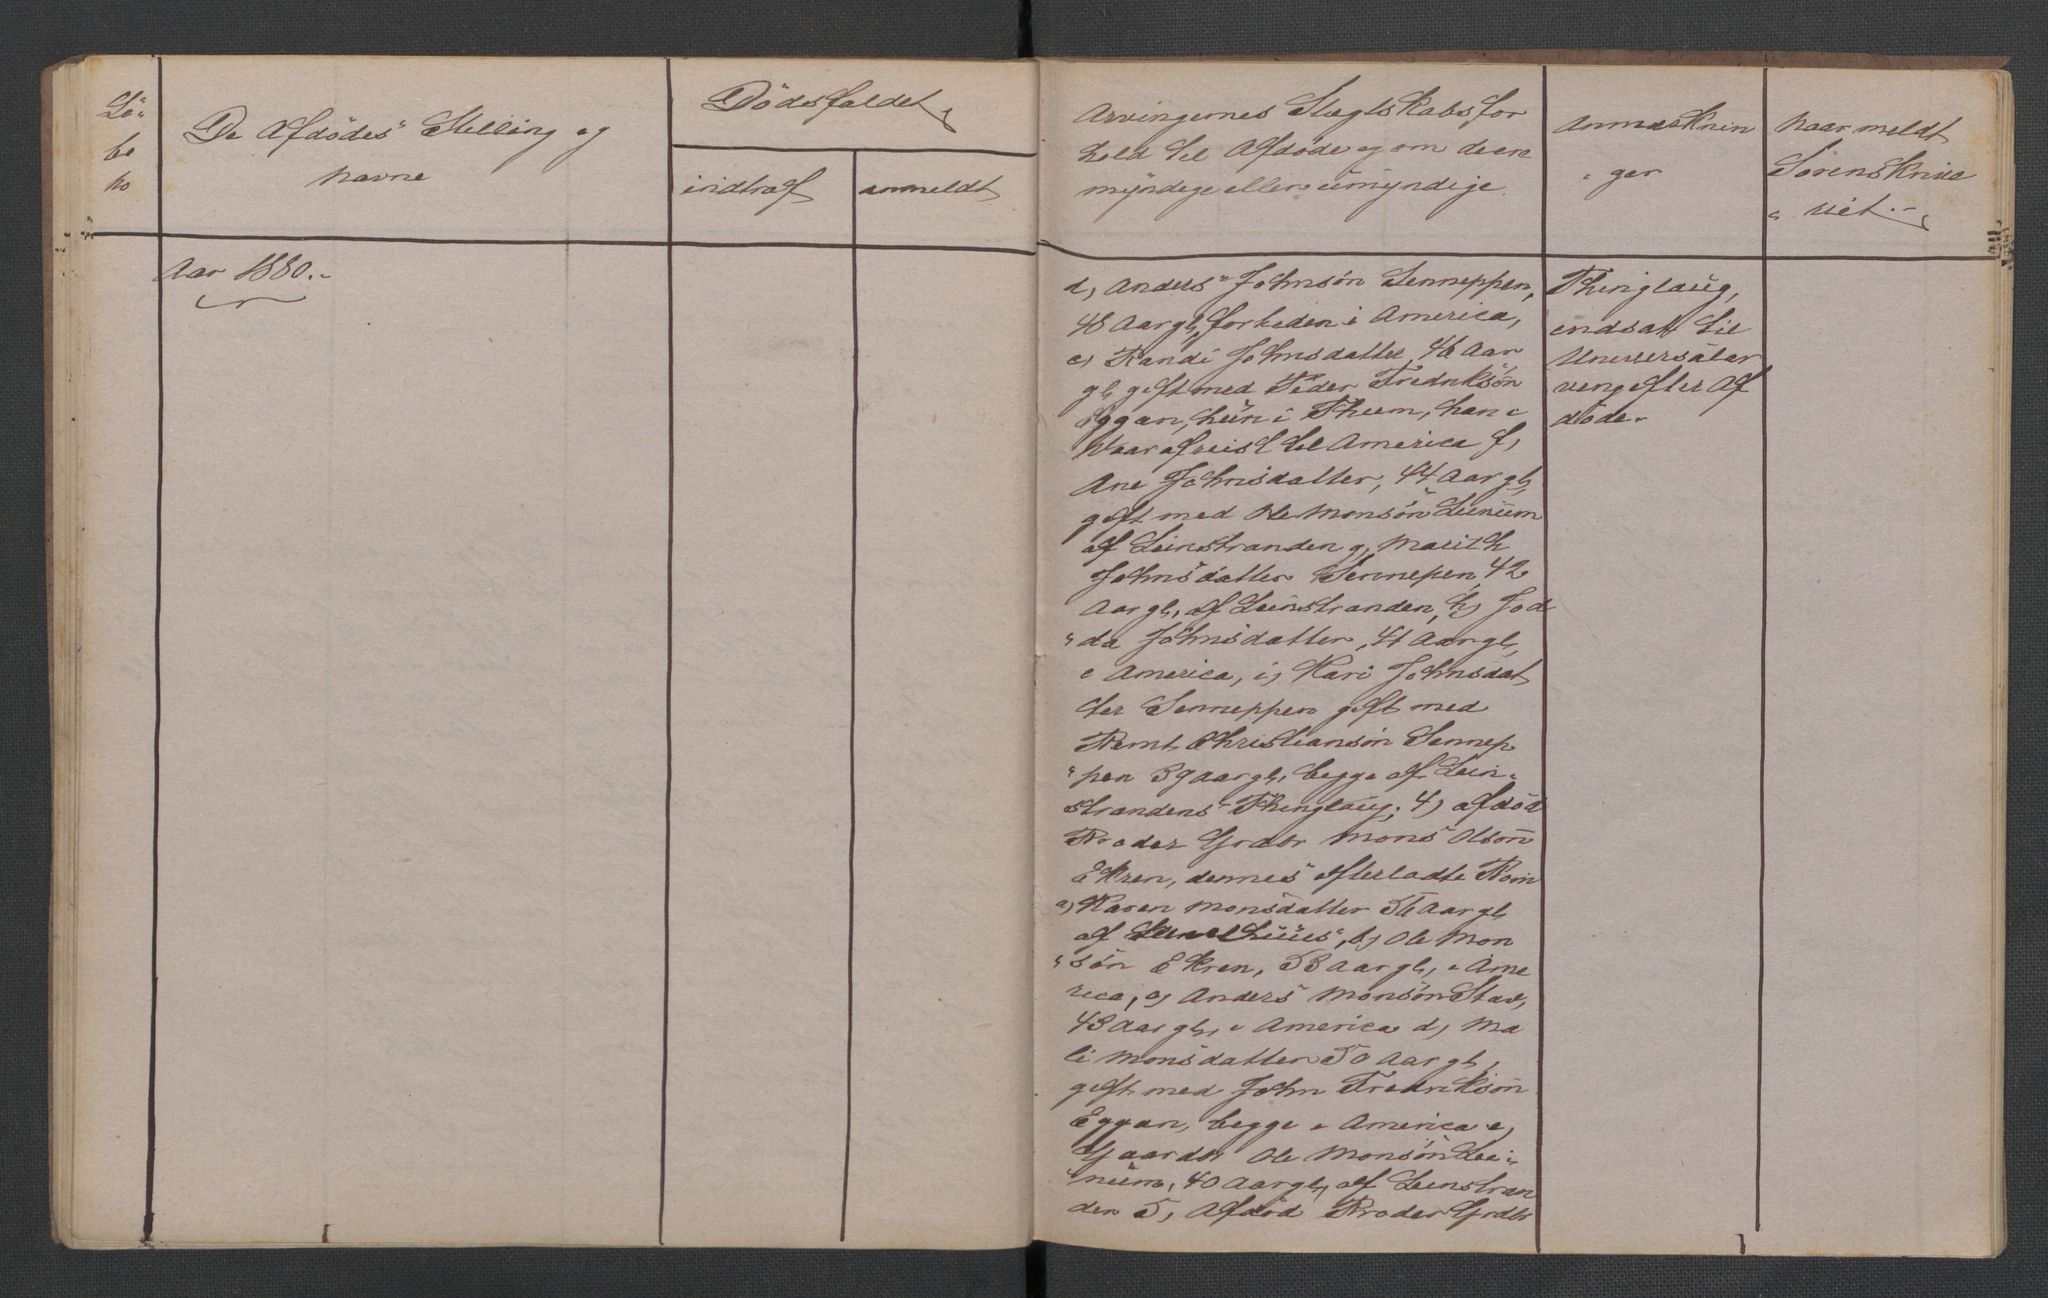 Lö-
be
no
De Afdödes Stilling og
navne
Dödsfaldet
indtraf
anmeldt
Arvingernes Slægtskabsfor
hold til Afdöde og om de ere
myndige eller umyndige.
Anmærknin
ger
naar meldt
Sorenskrive
riet.
Aar 1880.
d, Anders Johnsön Senneppen,
48 Aar gl, for tiden i America,
e, Randi Johnsdatter, 46 Aar
gl, gift med Peder Fredriksön
Eggan, hun i Thiem, han i
Vaar afreist til America f,
Ane Johnsdatter, 44 Aar gl,
gift med Ole Monsön Leinum
af Leinstranden g, Marith
Johnsdatter Sennepen, 42
Aar gl, af Leinstranden, h, Jod
da Johnsdatter, 41 Aar gl,
i America, i, Kari Johnsdat
ter Senneppen gift med
Bernt Christiansön Sennep
pen 39 aar gl, begge af Lein-
strandens Thinglaug; 4, afdöd
Broder Grdbr Mons Olsön
Ekren, dennes efterladte Börn
a, Karen Monsdatter 56 Aar gl,
af b, Ole Mon
sön Ekren, 53 aar gl, i Ame
rica, c, Anders Monsön Stav,
43 Aar gl, i America d, Ma
li Monsdatter 50 Aar gl,
gift med John Fredriksön
Eggan, begge i America e,
Gaardbr Ole Monsön Lei-
num, 40 Aar gl, af Leinstran
den 5, Afdöd Broder Grdbr
Thinglaug,
indsat til
Universalar
ving efter Af
döde.